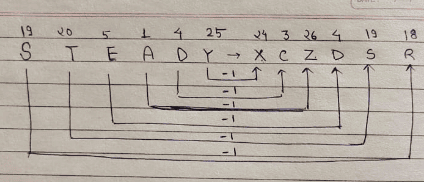 19 20 5 1 4 25 24 3 26 4 19 18
S T E A D Y → X C Z D S R
-1
-1
-1
-1
-1
-1